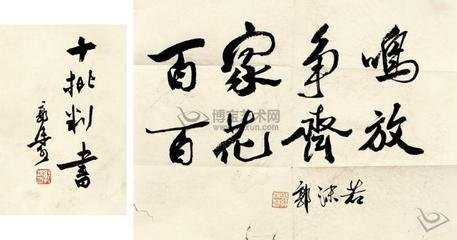 十批判書
郭沫若
百家争鳴
百花齊放
郭沫若
博宝艺术网